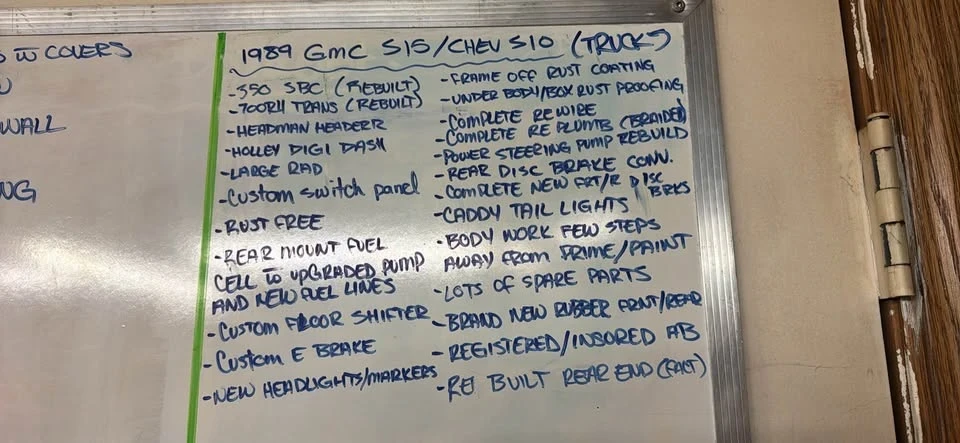 S W COVERS
WALL
NG
1989 GMC S15/CHEV S10 (TRUCK)
-350 SBC (REBUILT)
-700R4 TRANS (REBUILT)
-HEADMAN HEADERR
-HOLLEY DIGI DASH
-LARGE RAD
-CUSTOM SWITCH PANEL
-RUST FREE
-REAR MOUNT FUEL
CELL TO UPGRADED PUMP
AND NEW FUEL LINES
-CUSTOM FLOOR SHIFTER
-CUSTOM E BRAKE
-NEW HEADLIGHTS/MARKERS
-FRAME OFF RUST COATING
-UNDER BODY/BOX RUST PROOFING
-COMPLETE REWIRE
-COMPLETE RE PLUMB (BRAIDED)
-POWER STEERING PUMP REBUILD
-REAR DISC BRAKE CONV.
-COMPLETE NEW FRT/R DISC
BRKS
-CADDY TAIL LIGHTS
-BODY WORK FEW STEPS
AWAY FROM PRIME/PAINT
-LOTS OF SPARE PARTS
-BRAND NEW RUBBER FRNT/REAR
-REGISTERED/INSORED AB
-RE BUILT REAR END (FACT)